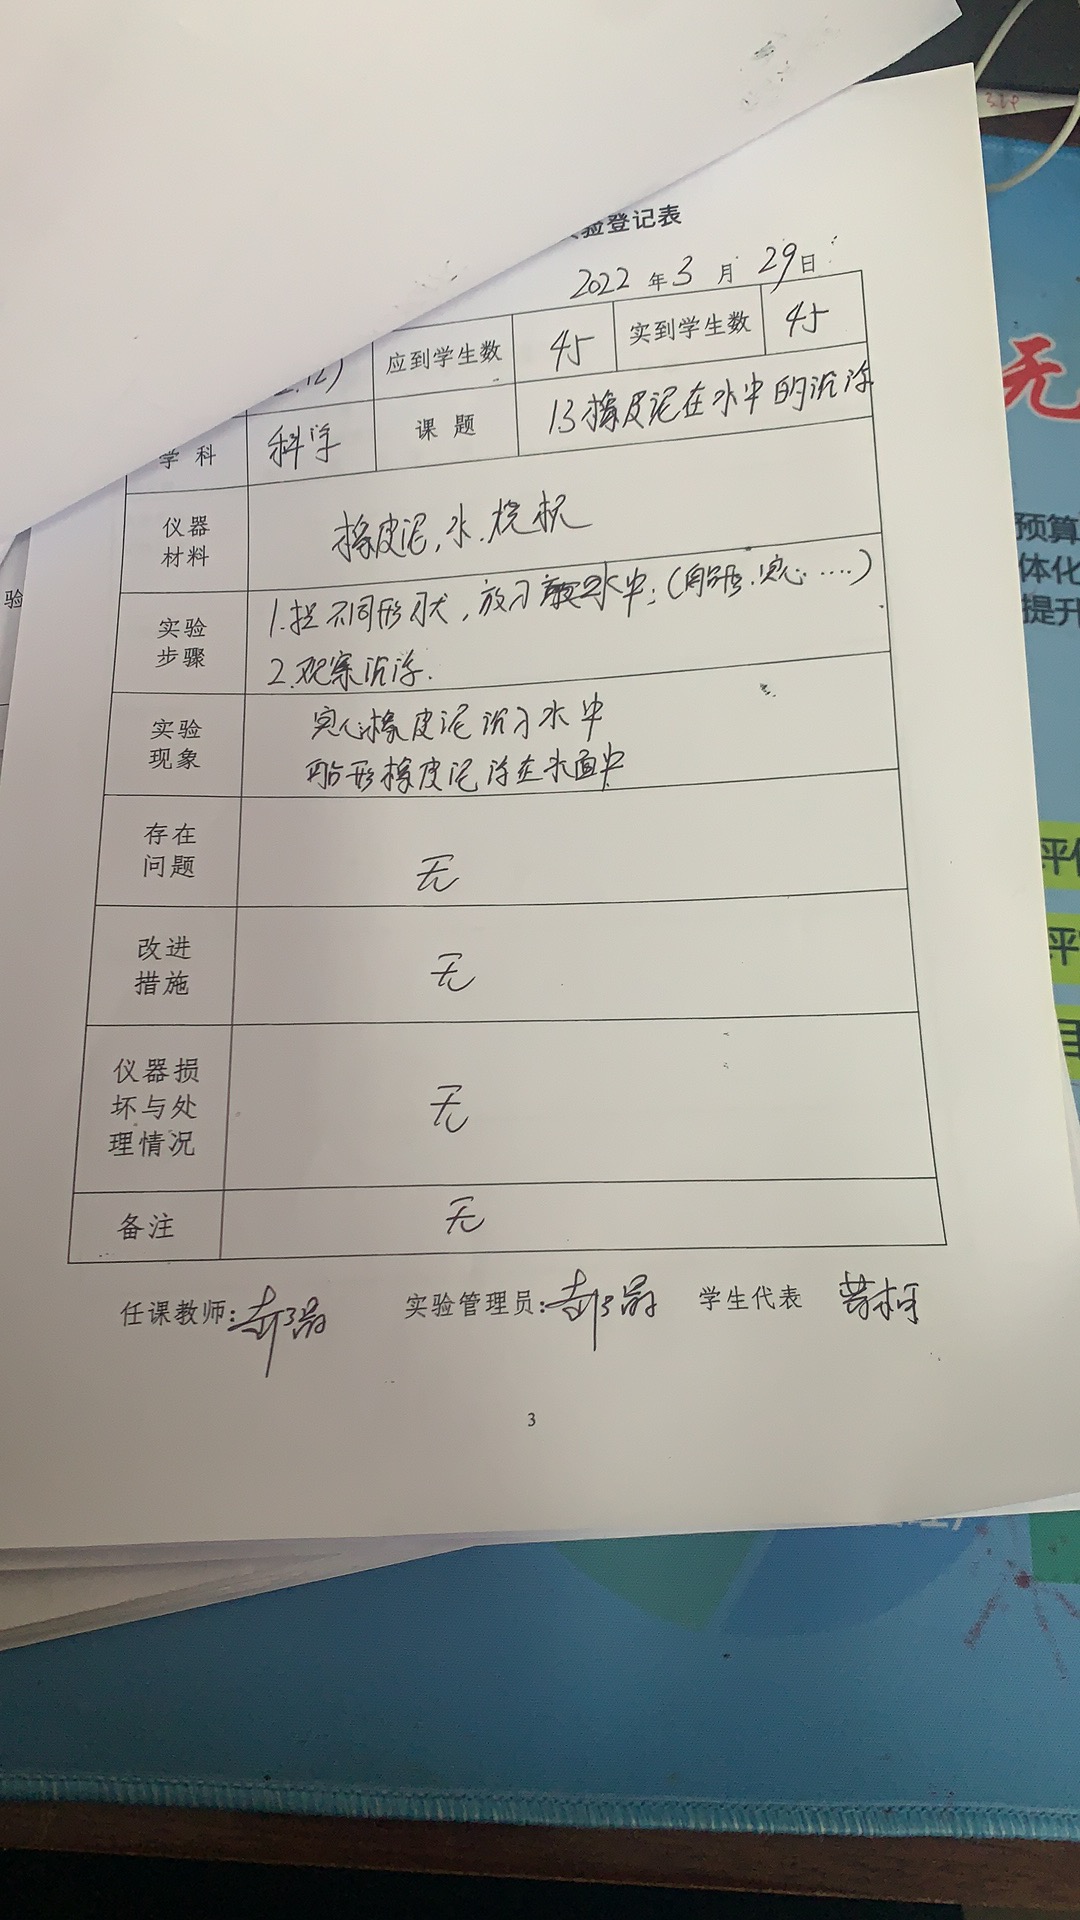 验登记表
2022 年 3 月 29 日
应到学生数 45 实到学生数 45
学科 科学 课题 13 橡皮泥在水中的沉浮
仪器
材料
橡皮泥、水、烧杯
实验
步骤
1.捏不同形状,放到水中:(船形、实心.....)
2.观察沉浮.
实验
现象
实心橡皮泥沉到水中
船形橡皮泥浮在水面中
存在
问题
无
改进
措施
无
仪器损
坏与处
理情况
无
备注 无
任课教师: 实验管理员: 学生代表
3
验
无
预算
体化
提升